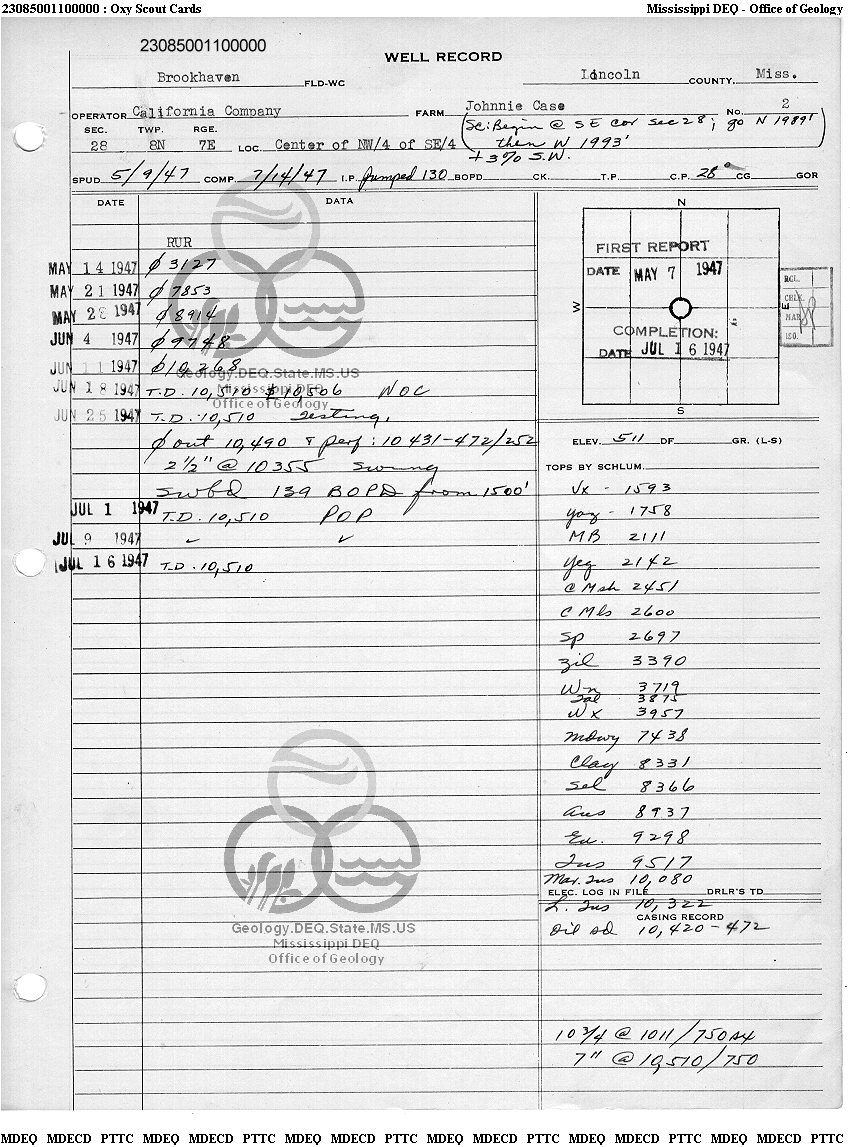 23085001100000 : Oxy Scout Cards Mississippi DEQ - Office of Geology
23085001100000
WELL RECORD
Brookhaven FLD-WC Lincoln COUNTY, Miss.
OPERATOR California Company FARM Johnnie Case No. 2
SEC. TWP. RGE.
28 8N 7E LOC. Center of NW/4 of SE/4
SC: Begin @ SE cor sec 28; go N 1989'
then W 1993'
+ 3% S.W.
SPUD 5/9/47 COMP. 7/14/47 I.P. Pumped 130 BOPD CK. T.P. C.P. 28° CG GOR
DATE DATA
RUR
MAY 14 1947 ϕ 3127
MAY 21 1947 ϕ 7853
MAY 28 1947 ϕ 8914
JUN 4 1947 ϕ 9748
JUN 11 1947 ϕ 10,268
JUN 18 1947 T.D. 10,510 ϕ 10,506 NOC
JUN 25 1947 T.D. 10,510 Testing,
ϕ out 10,490 & perf: 10 431-472/252
2½" @ 10355 Swung
Swbd 139 BOPD from 1500'
JUL 1 1947 T.D. 10,510 POP
JUL 9 1947 ✓ ✓
JUL 16 1947 T.D. 10,510
N
FIRST REPORT
DATE MAY 7 1947
W E
COMPLETION:
DATE JUL 16 1947
S
RCL.
CHLK.
MAP
ISO.
ELEV. 511 DF GR. (L-S)
TOPS BY SCHLUM.
Vx - 1593
yaz - 1758
MB 2111
Yeg 2142
C Msh 2451
C Mls 2600
Sp 2697
Zil 3390
Wn 3719
Sal 3875
Wx 3957
Mdwy 7438
Clay 8331
Sel 8366
Aus 8937
Eu. 9298
Tus 9517
Mar. Tus 10,080
ELEC. LOG IN FILE DRLR'S TD
L. Tus 10,322
CASING RECORD
Oil sd 10,420-472
10 3/4 @ 1011/750 sx
7" @ 10,510/750
Geology.DEQ.State.MS.US
Mississippi DEQ
Office of Geology
Geology.DEQ.State.MS.US
Mississippi DEQ
Office of Geology
MDEQ MDECD PTTC MDEQ MDECD PTTC MDEQ MDECD PTTC MDEQ MDECD PTTC MDEQ MDECD PTTC MDEQ MDECD PTTC